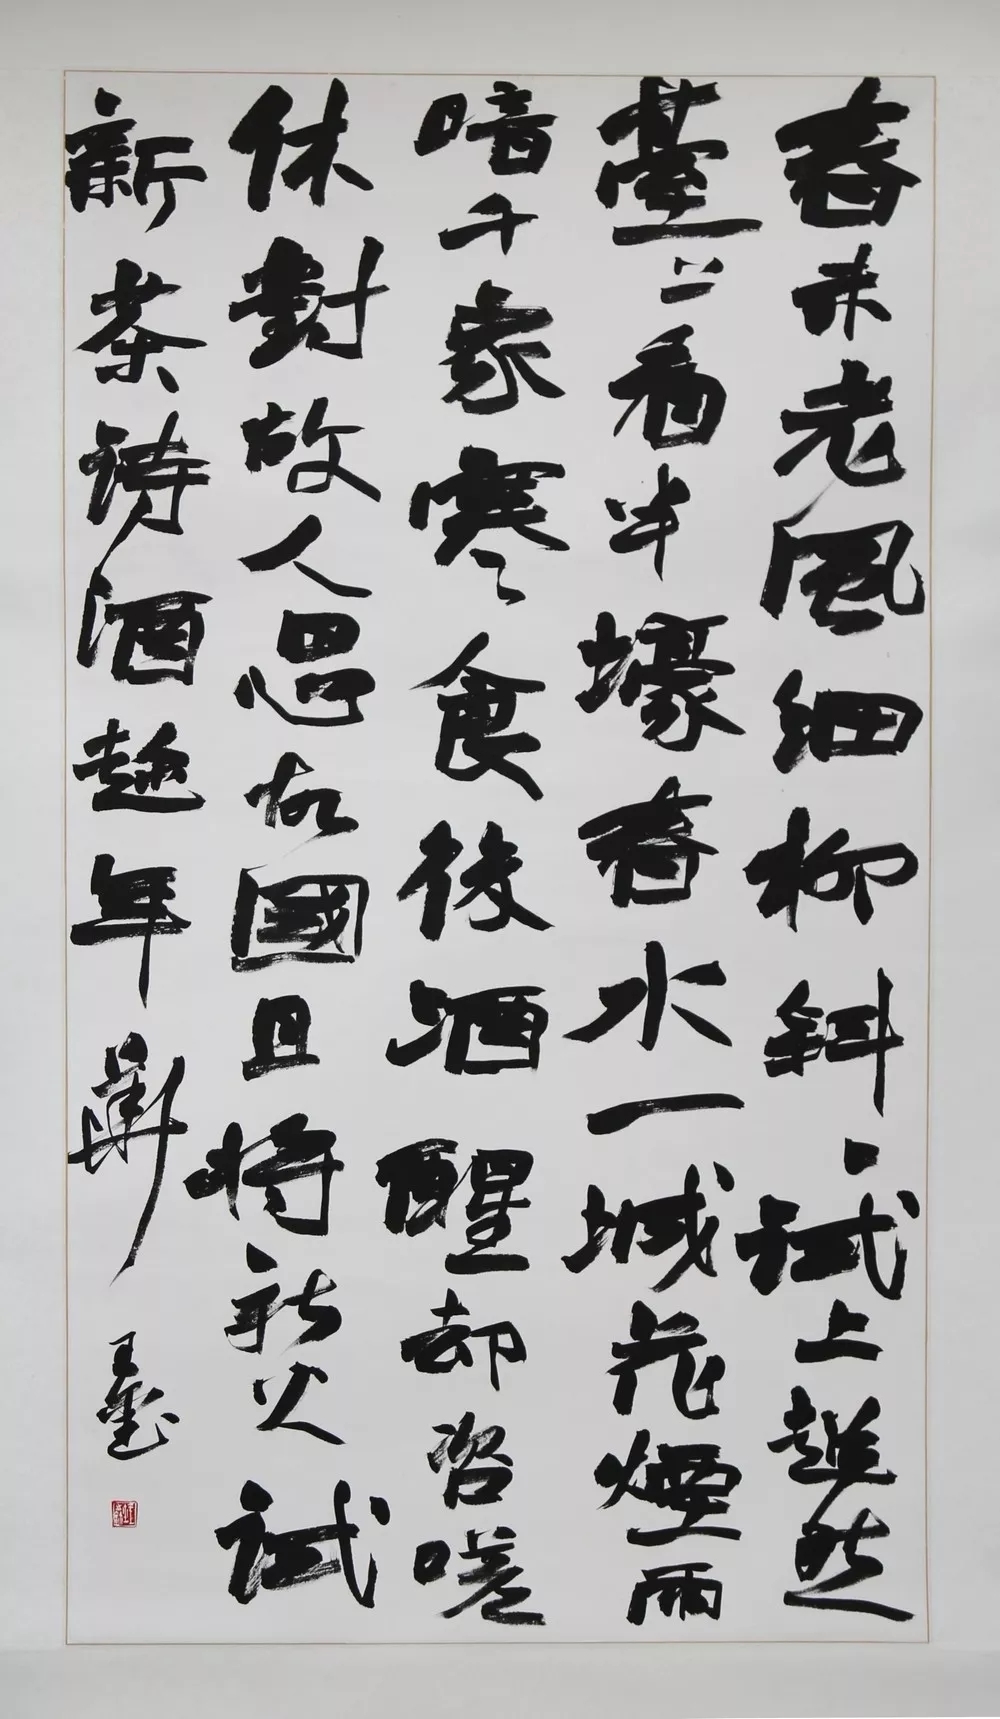 春未老風細柳斜、試上超然
臺上看半壕春水一城花煙雨
暗千家寒食後酒醒却咨嗟
休對故人思故國且將新火試
新茶詩酒趂年華
王